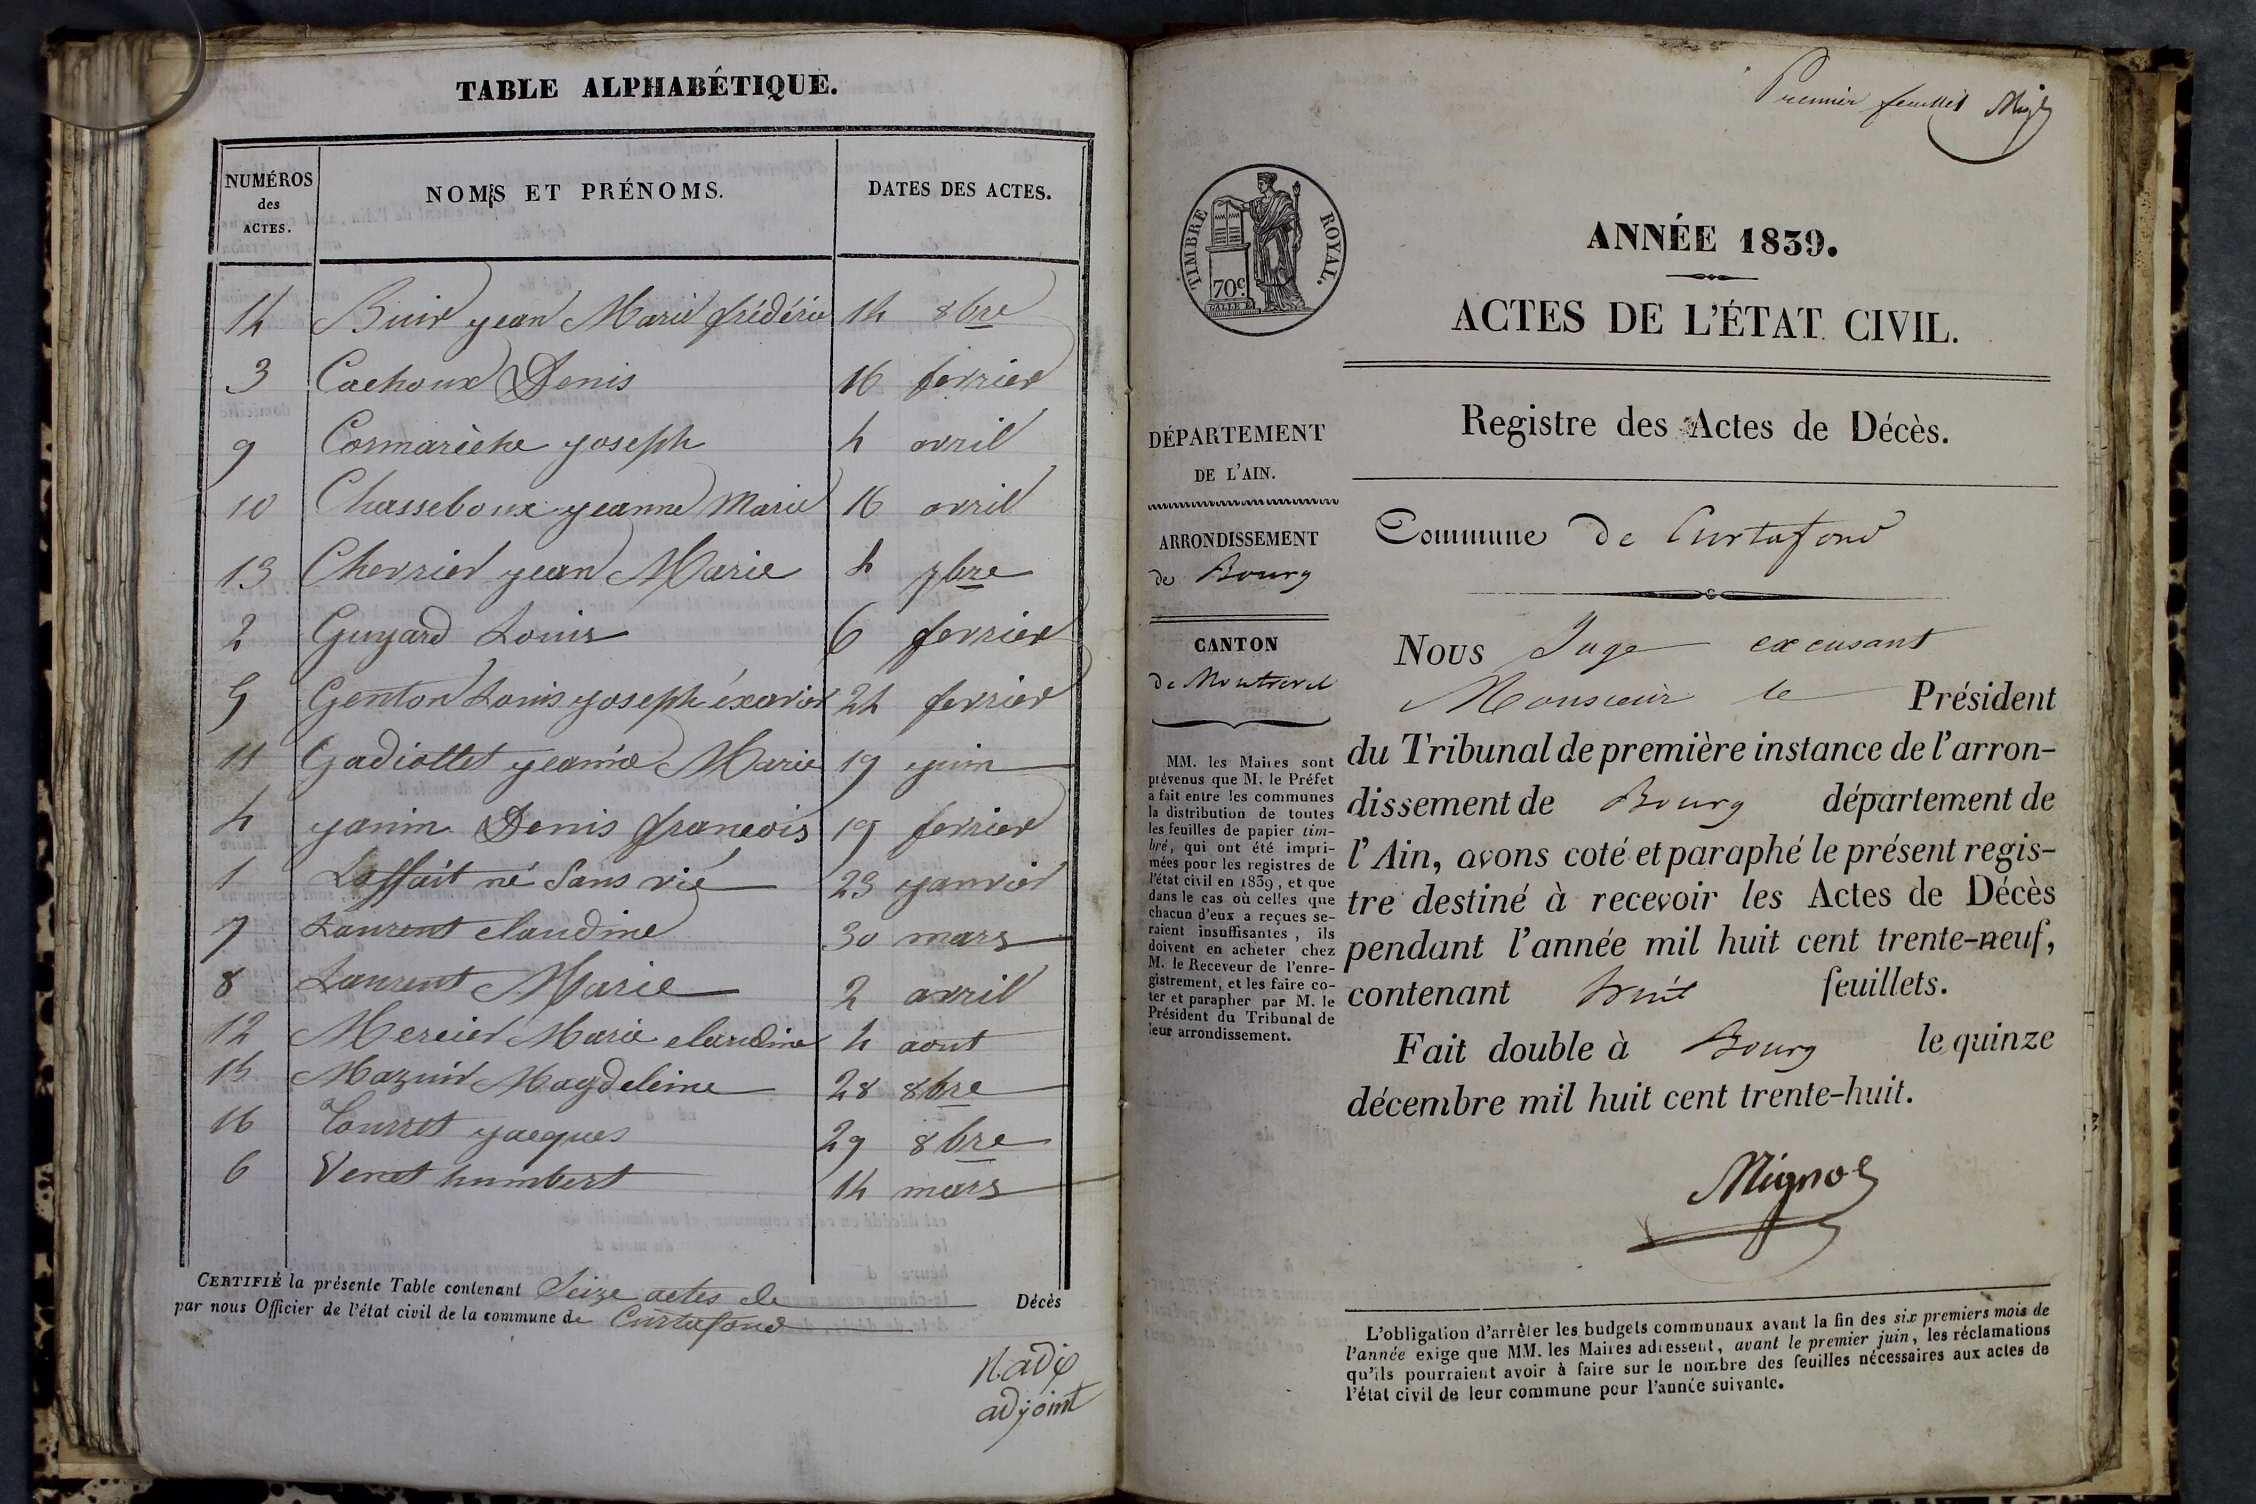 TABLE ALPHABÉTIQUE.
NUMÉROS des ACTES. NOMS ET PRÉNOMS. DATES DES ACTES.
14 Buir jean Marie frédéric 14 8bre
3 Cachoux Denis 16 fevrier
9 Cormarèche joseph 4 avril
10 Chasseboux jeanne Marie 16 avril
13 Chevrier jean Marie 4 7bre
2 Guyard Louis 6 fevrier
5 Genton Louis joseph éxavier 24 fevrier
11 Gadiollet jeanne Marie 19 juin
4 janin Denis francois 19 fevrier
1 Laffait né Sans vie 23 janvier
7 Laurent claudine 30 mars
8 Laurent Marie 2 avril
12 Mercier Marie claudine 4 aout
15 Mazuir Magdeleine 28 8bre
16 Tourret jacques 29 8bre
6 Veret humbert 14 mars
CERTIFIÉ la présente Table contenant Seize actes de Décès
par nous Officier de l'état civil de la commune de Curtafond
adjoint
Premier feuillet
TIMBRE ROYAL.
70c.
ANNÉE 1839.
ACTES DE L'ÉTAT CIVIL.
Registre des Actes de Décès.
DÉPARTEMENT
DE L'AIN.
ARRONDISSEMENT
de Bourg
CANTON
de Montrevel
MM. les Maires sont
prévenus que M. le Préfet
a fait entre les communes
la distribution de toutes
les feuilles de papier tim-
bré, qui ont été impri-
mées pour les registres de
l'état civil en 1839, et que
dans le cas où celles que
chacun d'eux a reçues se-
raient insuffisantes, ils
doivent en acheter chez
M. le Receveur de l'enre-
gistrement, et les faire co-
ter et parapher par M. le
Président du Tribunal de
leur arrondissement.
Commune de Curtafond
Nous Juge excusant
Monsieur le Président
du Tribunal de première instance de l'arron-
dissement de Bourg département de
l'Ain, avons coté et paraphé le présent regis-
tre destiné à recevoir les Actes de Décès
pendant l'année mil huit cent trente-neuf,
contenant huit feuillets.
Fait double à Bourg le quinze
décembre mil huit cent trente-huit.
L'obligation d'arrêter les budgets communaux avant la fin des six premiers mois de
l'année exige que MM. les Maires adressent, avant le premier juin, les réclamations
qu'ils pourraient avoir à faire sur le nombre des feuilles nécessaires aux actes de
l'état civil de leur commune pour l'année suivante.